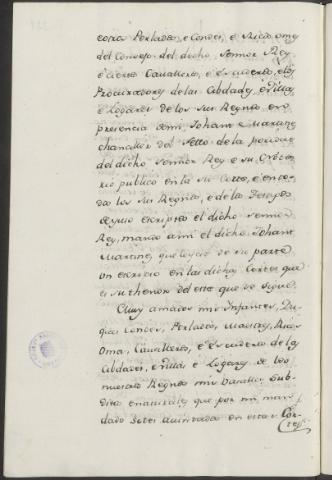 otros Perlados, e Condes, e Ricos omes
del Consejo del dicho Señor Rey
é ciertos Cavalleros, é Escuderos, e los
Procuradores de las Cibdades, e Villas
e Logares de los sus Regnos, en
presencia de mi, Johant Martinez
chanceller del sello de la poridad
del dicho Señor Rey e su Escriba
rio publico en la su Corte, é en to
dos los sus Regnos, é de los Testigos
de yuso escriptos el dicho Señor
Rey, mandó a mi el dicho Johant
Martinez, que leyese de su parte
un escripto en las dichas Cortes que
el su thenor del este que se sigue.
Muy amados mis Infantes, Du
ques Condes, Perlados, Maestres, Ricos
Omes, Cavalleros, é Escuderos de las
Cibdades, e Villas e Logares de los
nuestros Regnos mis Vasallos, Sub
ditos e naturales, que por mi man
dado sodes ayuntados en estas Cor
tes.